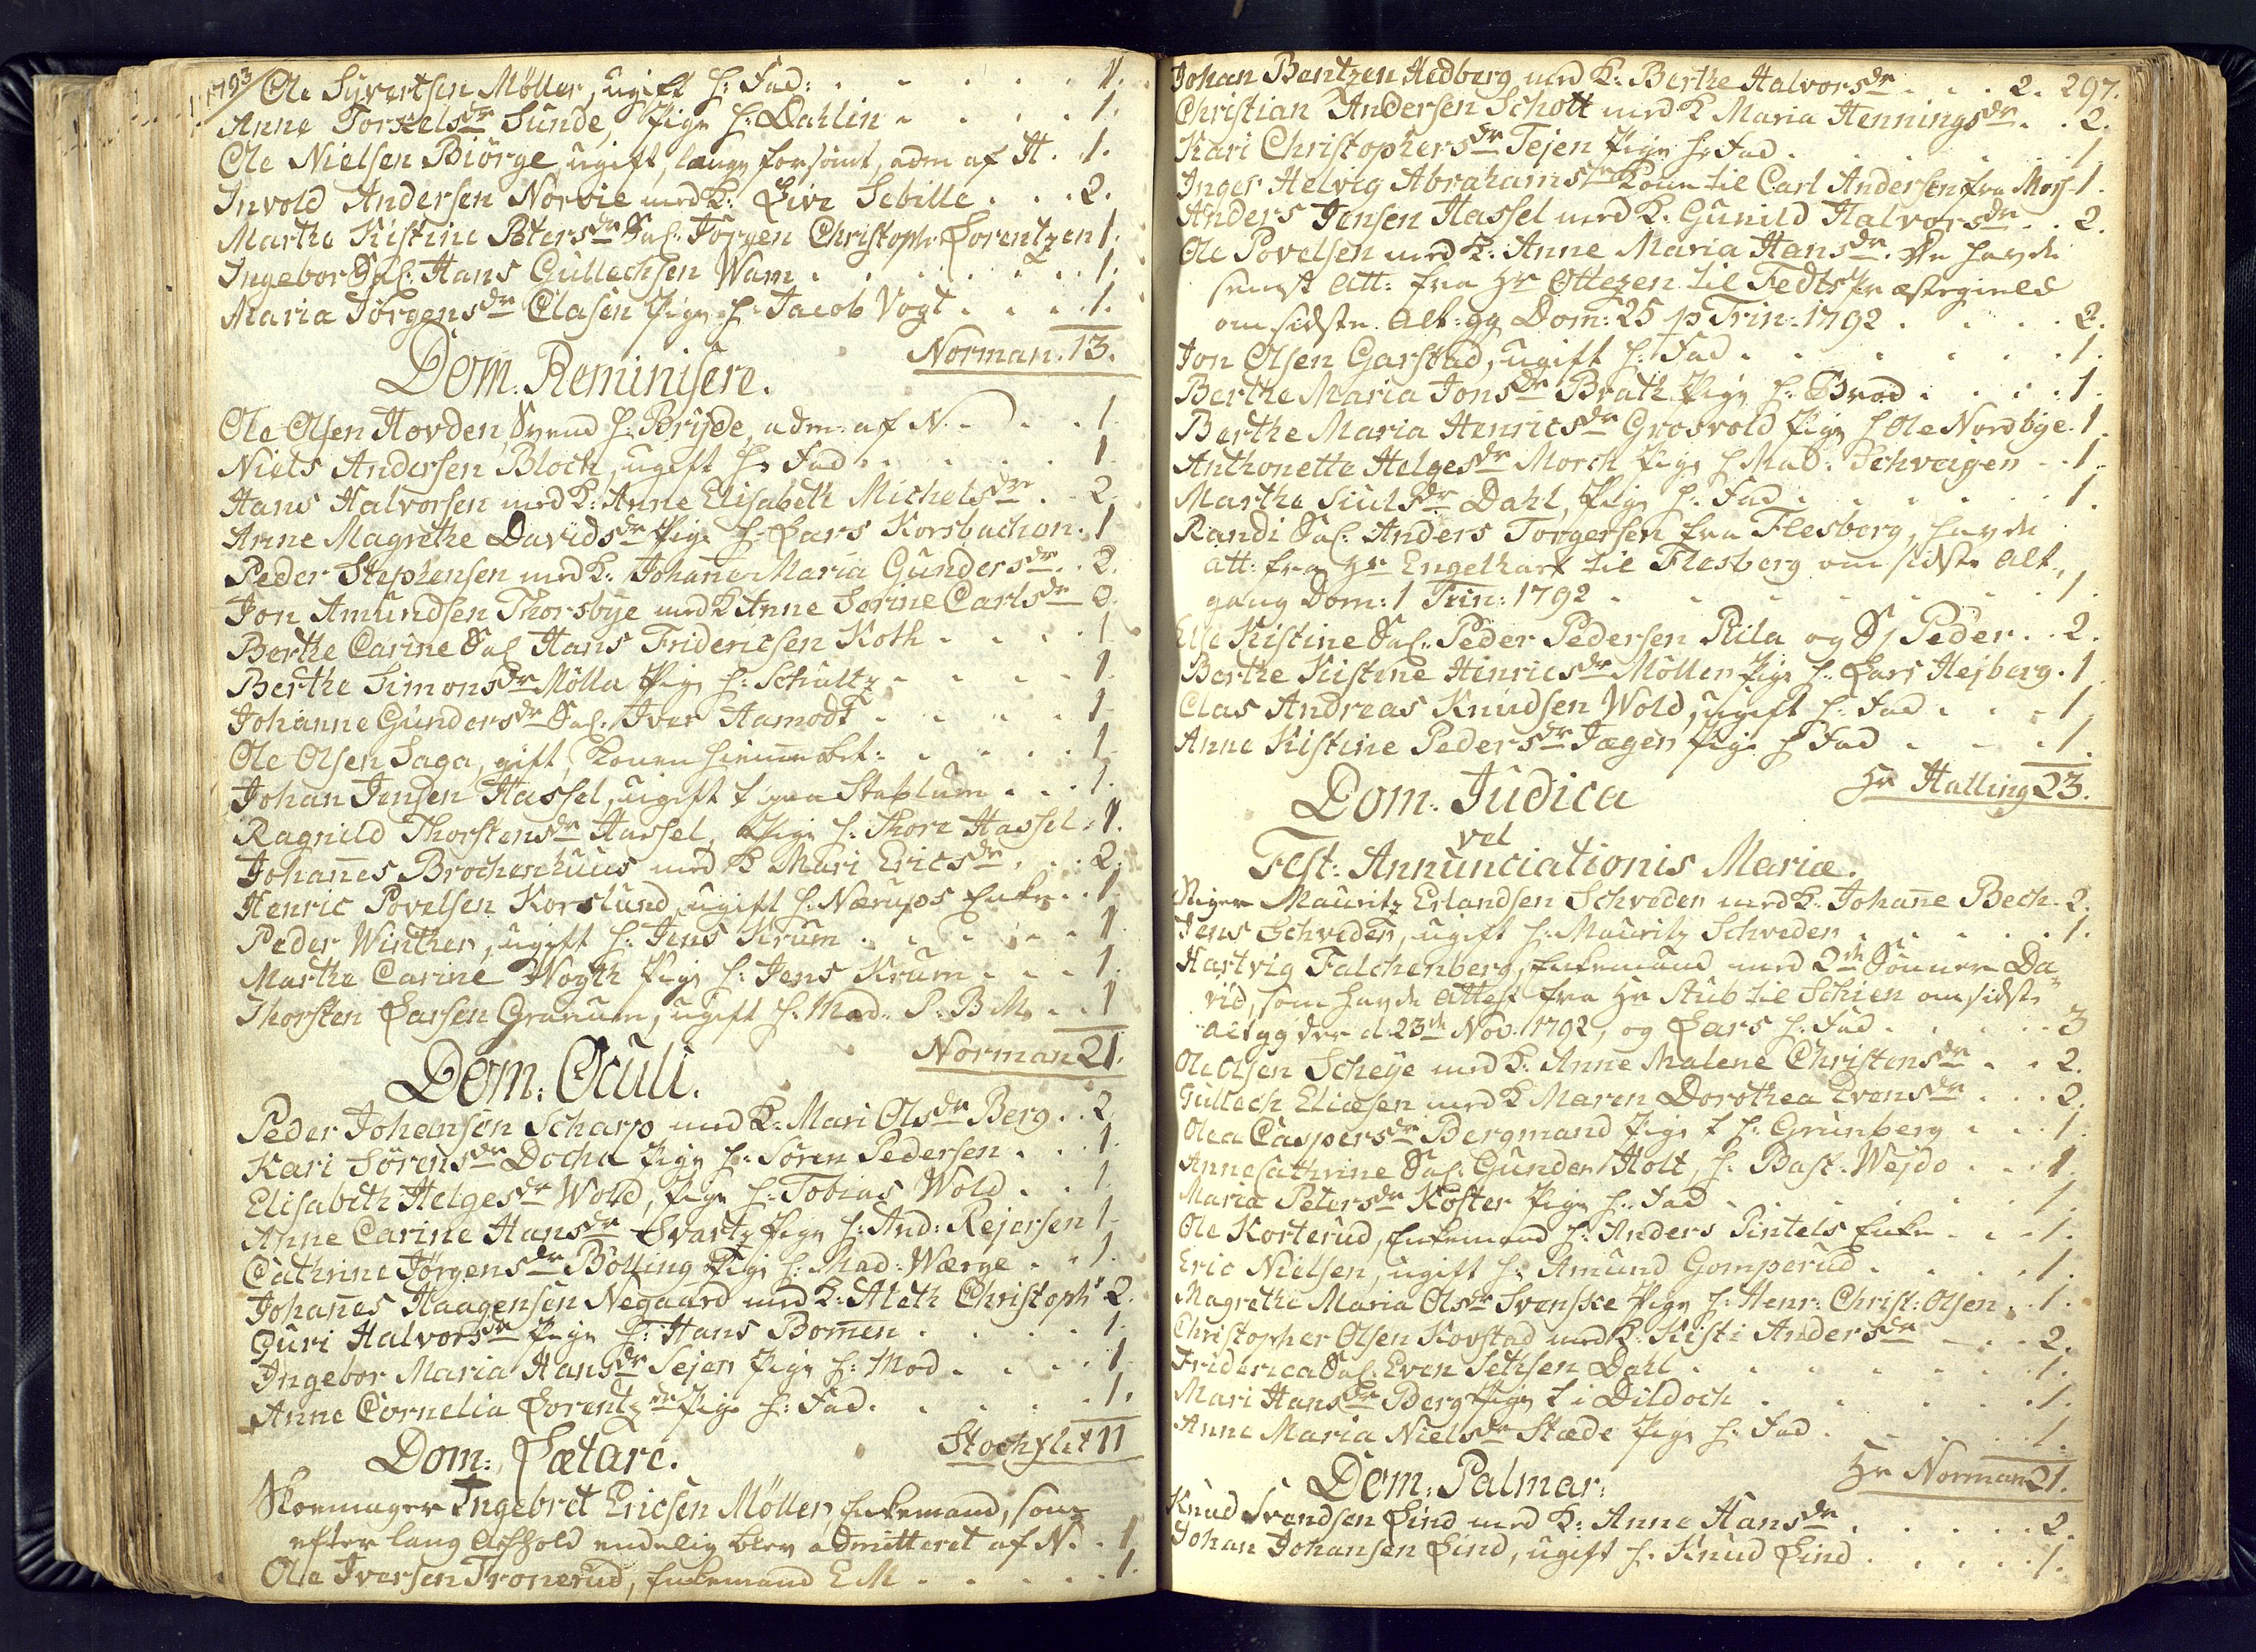 1793
Ole Syvertsen Møller, ugift h: Fad: . . . . . 1.
Anne Torkelsdr Sunde, Pige h: Dahlin . . . . 1.
Ole Nielsen Biörge, ugift, længe forsömt, adm af H. . 1.
Invold Andersen Norbie med K: Livi Sebille . . . 2.
Marthe Kistine Petersdr Sal: Jörgen Christoph: Lorentzen 1.
Ingebor Sal: Hans Gullechsen Wam . . . . . 1.
Maria Jörgensdr Clasen Pige h: Jacob Vogt . . . 1.
Norman. 13.
Dom. Reminisere.
Ole Olsen Hovden, Svend h: Bryde, adm: af N. . . . 1
Niels Andersen Bloch, ugift h: Fad . . . . . 1
Hans Halvorsen med K: Anne Elisabeth Michelsdr . . 2.
Anne Magrethe Davidsdr Pige h: Lars Korsbachen . 1
Peder Stephensen med K: Johanne Maria Gundersdr . . 2.
Jon Amundsen Thorsbye med K Anne Sorine Carlsdr 2.
Berthe Carine Sal Hans Fridericsen Koth . . . . 1
Berthe Simonsdr Mölla Pige h: Schultz . . . . 1.
Johanne Gundersdr Sal: Iver Aamodt . . . . 1
Ole Olsen Saga, gift, Konen hiemme bet: . . . . 1
Johan Jensen Hassel, ugift t paa Stablum . . . 1.
Ragnild Thorstensdr Hassel, Pige h: Thore Hassel . 1.
Johannes Brochenhuus med K Mari Ericsdr . . . 2.
Henric Povelsen Korslund, ugift h: Nærups Enke . . 1
Peder Winther, ugift h: Jens Krum . . . . . 1.
Marthe Carine Vogth Pige h: Jens Krum . . . 1.
Thorsten Larsen Gruium, ugift h: Mad. P. B M. . . 1
Norman 21.
Dom: Oculi.
Peder Johansen Scharp med K: Mari Olsdr Berg . . 2
Kari Sörensdr Docha Pige h: Sören Pedersen . . . 1.
Elisabeth Helgesdr Wold, Pige h: Tobias Wold . . 1.
Anne Carine Hansdr Svartz Pige h: And: Rejersen 1
Cathrine Jörgensdr Bölling Pige h: Mad: Værge . . 1.
Johannes Haagensen Negaard med K: Aleth Christoph" 2.
Guri Halvorsdr Pige h: Hans Bomen . . . . 1.
Ingebor Maria Hansdr Sejer Pige h: Mod . . . . 1
Anne Cornelia Lorentzdr Pige h: Fad. . . . . . 1.
Stochflet 11
Dom: Lætare.
Skomager Ingebret Ericsen Möller, Enkemand, som
efter lang Ophold endelig blev admitteret af N. . 1
Ole Iversen Tronerud, Enkemand E M . . . . . 1.
297.
Johan Bentzen Hedberg med K: Berthe Halvorsdr . . . 2.
Christian Andersen Schott med K Maria Henningsdr . . 2.
Kari Christophersdr Tejen Pige h: Fad . . . . . . 1
Inger Helvig Abrahamsdr Kone til Carl Andersen fra Moss . 1.
Anders Jensen Hassel med K: Gunild Halvorsdr . . 2.
Ole Povelsen med K: Anne Maria Hansdr. De havde
senest att: fra Hr Ottezen til Fedts Præstegield
om sidste Alt: gg Dom: 25 p Trin: 1792 . . . . . 2.
Jon Olsen Garstad, ugift h: Fad . . . . . . . 1.
Berthe Maria Jonsdr Brath Pige h: Brod . . . . 1.
Berthe Maria Henricsdr Grosvold Pige h Ole Nordbye . 1.
Anthonette Helgesdr Morch Pige h Mad: Schveigen . . 1.
Marthe Siulsdr Dahl, Pige h: Fad . . . . . . 1.
Randi Sal: Anders Torgersen fra Flesberg, havde
att: fra Hr Engelhart til Flesberg om sidste Alt,,
gang Dom: 1 Trin: 1792 . . . . . . . 1.
Else Kistine Sal: Peder Pedersen Riila og S Peder . . 2.
Berthe Kistine Henricsdr Möller Pige h: Lars Hejberg . 1
Clas Andreas Knudsen Wold, ugift h: Fad . . . 1
Anne Kistine Pedersdr Jæger Pige h Fad . . . 1.
Hr Halling 23.
Dom: Judica
vel
Fest: Annunciationis Mariæ.
Stiger Mauritz Erlandsen Schveder med K: Johanne Bech . 2.
Jens Schveden, ugift h: Mauritz Schveder . . . . . 1.
Hartvig Falchenberg, Enkemand med 2de Sönner Da=
vid, som havde Attest fra Hr Aub til Schien om sidste
Alt gg der d: 23de Nov. 1792, og Lars h: Fad . . . . . 3
Ole Olsen Scheye med K: Anne Malene Christensdr . . 2.
Gullech Eliæsen med K Maren Dorothea Evensdr . . . 2.
Olea Caspersdr Bergmand Pige t h: Grünberg . . . 1.
Anne Cathrine Sal: Gunder Holt, h: Bast: Wejdo . . . 1.
Maria Petersdr Köster Pige h: Fad . . . . . . 1.
Ole Korterud, Enkemand h: Anders Pintels Enke . . . 1.
Eric Nielsen, ugift h: Amund Gomperud . . . . . 1.
Magrethe Maria Olsdr Svenske Pige h: Henr: Christ: Olsen . 1.
Christopher Olsen Kovstad med K: Kisti Andersdr . . . 2.
Friderica Sal: Even Sethsen Dahl . . . . . . 1.
Mari Hansdr Berg Pige t i Dildoch . . . . . . 1.
Anne Maria Nielsdr Stæde Pige h: Fad . . . . . 1.
Hr Norman 21.
Dom: Palmar:
Knud Svendsen Lind med K: Anne Hansdr . . . . . 2.
Johan Johansen Lind, ugift h: Knud Lind . . . . . 1.